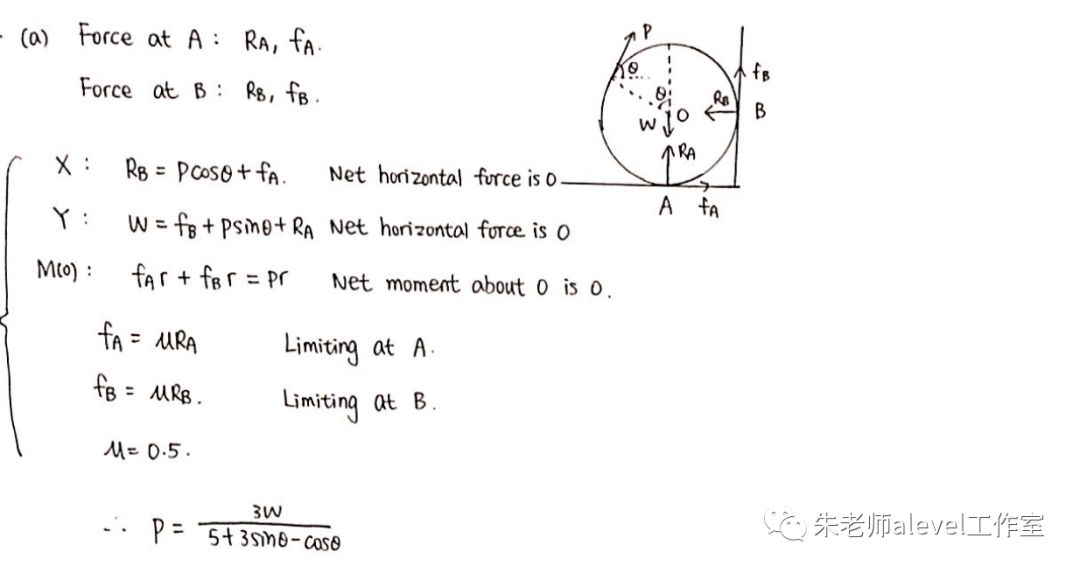 (a) Force at A : RA, fA.
Force at B : RB, fB.
P
θ
fB
θ
RB
B
W
O
RA
A
fA
X : RB = Pcosθ + fA. Net horizontal force is 0
Y : W = fB + Psinθ + RA Net horizontal force is 0
M(O) : fAr + fBr = Pr Net moment about O is 0.
fA = μRA Limiting at A.
fB = μRB. Limiting at B.
μ = 0.5.
∴ P = 3W / (5 + 3sinθ - cosθ)
朱老师alevel工作室